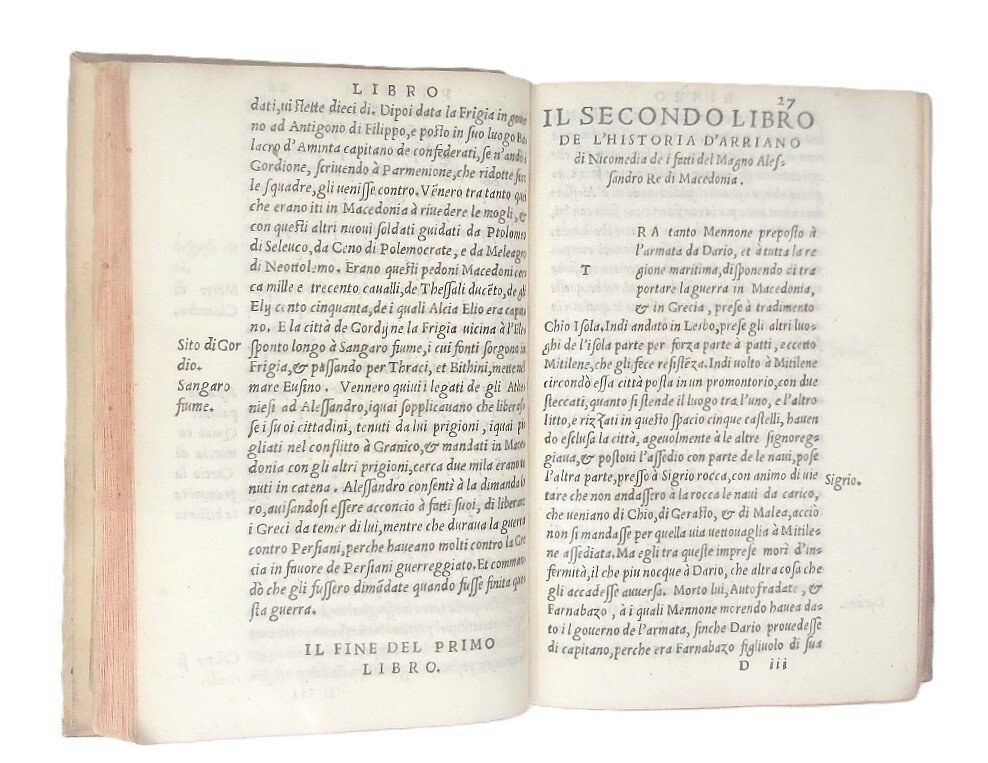 LIBRO
dati, ui ſtette dieci di. Dipoi data la Frigia in
no ad Antigono di Filippo, e poſto in ſuo luogo
lacro d'Aminta capitano de confederati, ſe n'andò
Gordione, ſcriuendo à Parmenione, che ridotte
le ſquadre, gli ueniſſe contro. Vẽnero tra tanto
che erano iti in Macedonia à riuedere le mogli, &
con queſti altri nuoui ſoldati guidati da Ptolomeo
di Seleuco, da Ceno di Polemocrate, e da Meleagro
di Neottolemo. Erano queſti pedoni Macedoni cer
ca mille e trecento caualli, de Theſſali ducẽto, de gli
Ely cento cinquanta, de i quali Alcia Elio era capita
no. E la città de Gordyne la Frigia uicina à l'Eleſ
ſponto longo à Sangaro fiume, i cui fonti ſorgono in
Frigia, & paſſando per Thraci, et Bithini, mette nel
mare Euſino. Vennero quiui i legati de gli Athe
nieſi ad Aleſſandro, iquai ſopplicauano che liberaſ
ſe i ſuoi cittadini, tenuti da lui prigioni, iquai
gliati nel conflitto à Granico, & mandati in Mace
donia con gli altri prigioni, cerca due mila erano te
nuti in catena. Aleſſandro conſentì à la dimanda lo
ro, auiſandoſi eſſere acconcio à fatti ſuoi, di liberare
i Greci da temer di lui, mentre che duraua la guerra
contro Perſiani, perche haueano molti contro la Gre
cia in fauore de Perſiani guerreggiato. Et coman
dò che gli fuſſero dimãdate quando fuſſe finita que
ſta guerra.
IL FINE DEL PRIMO
LIBRO.
Sito di Gor
dio.
Sangaro
fiume.
27
IL SECONDO LIBRO
DE L'HISTORIA D'ARRIANO
di Nicomedia de i fatti del Magno Aleſ-
ſandro Re di Macedonia.
T RA tanto Mennone prepoſto à
l'armata da Dario, et à tutta la re
gione maritima, diſponendo di tra
portare la guerra in Macedonia,
& in Grecia, preſe à tradimento
Chio Iſola. Indi andato in Lesbo, preſe gli altri luo-
ghi de l'iſola parte per forza parte à patti, eccetto
Mitilene, che gli fece reſiſtẽza. Indi uolto à Mitilene
circondò eſſa città poſta in un promontorio, con due
ſteccati, quanto ſi ſtende il luogo tra l'uno, e l'altro
litto, e rizzati in queſto ſpacio cinque caſtelli, hauen
do eſcluſa la città, ageuolmente à le altre ſignoreg-
giaua, & poſtoui l'aſſedio con parte de le naui, poſe
l'altra parte, preſſo à Sigrio rocca, con animo di uie
tare che non andaſſero à la rocca le naui da carico,
che ueniano di Chio, di Geraſto, & di Malea, acciò
non ſi mandaſſe per quella uia uettouaglia à Mitile-
ne aſſediata. Ma egli tra queſte impreſe morì d'in-
fermità, il che piu nocque à Dario, che altra coſa che
gli accadeſſe auuerſa. Morto lui, Autofradate, &
Farnabazo, à i quali Mennone morendo hauea da-
to il gouerno de l'armata, finche Dario prouedeſſe
di capitano, perche era Farnabazo figliuolo di ſua
D iii
Sigrio.